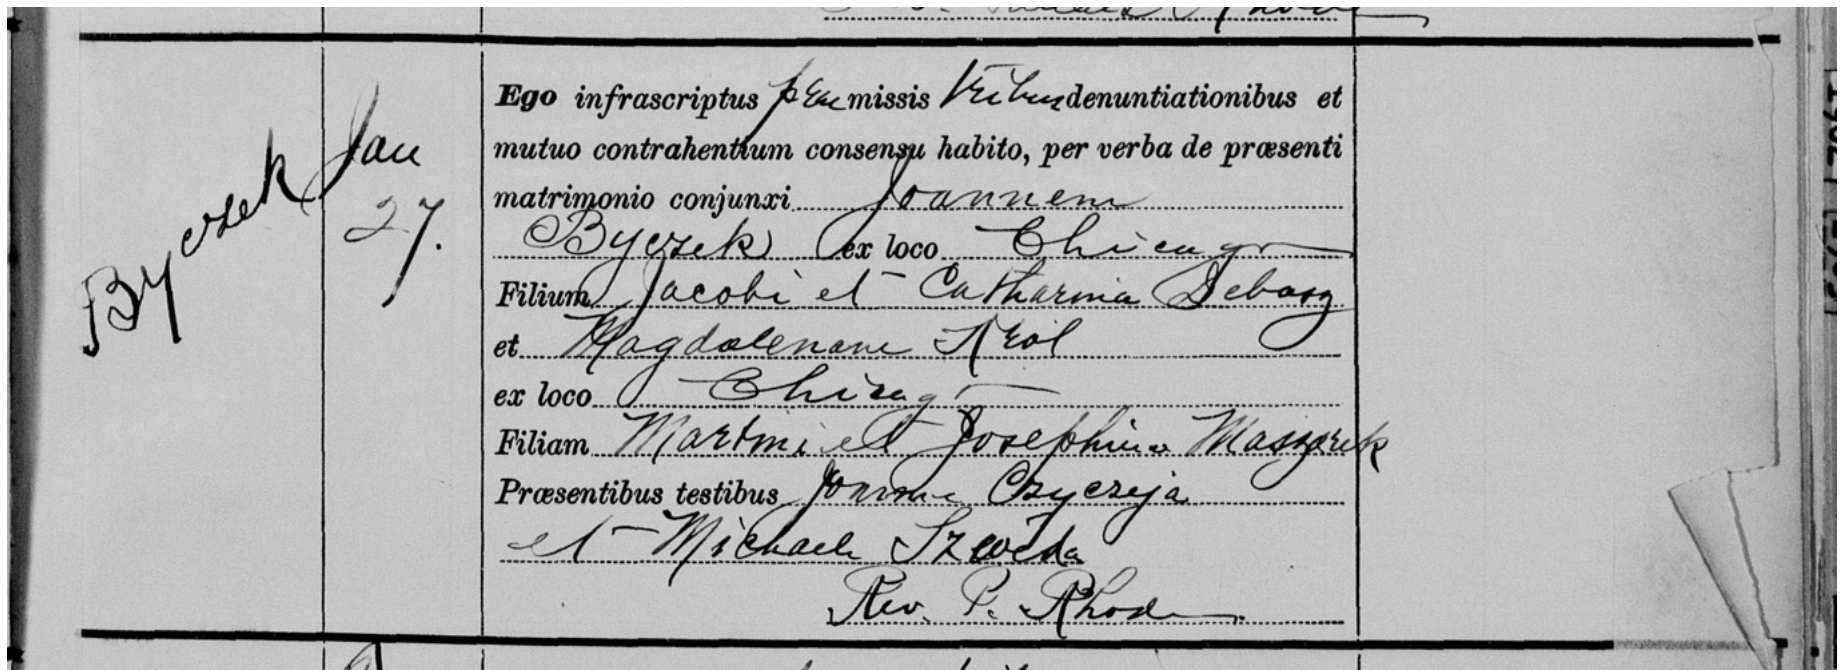 Byczek
Jan
27.
Ego infrascriptus præmissis tribus denuntiationibus et
mutuo contrahentium consensu habito, per verba de præsenti
matrimonio conjunxi Joannem
Byczek ex loco Chicago
Filium Jacobi et Catharina Debosz
et Magdalenam Krol
ex loco Chicago
Filiam Martini et Josephina Maszarek
Præsentibus testibus Joanne Czyczeja
et Michaele Szweda
Rev. P. Rhode